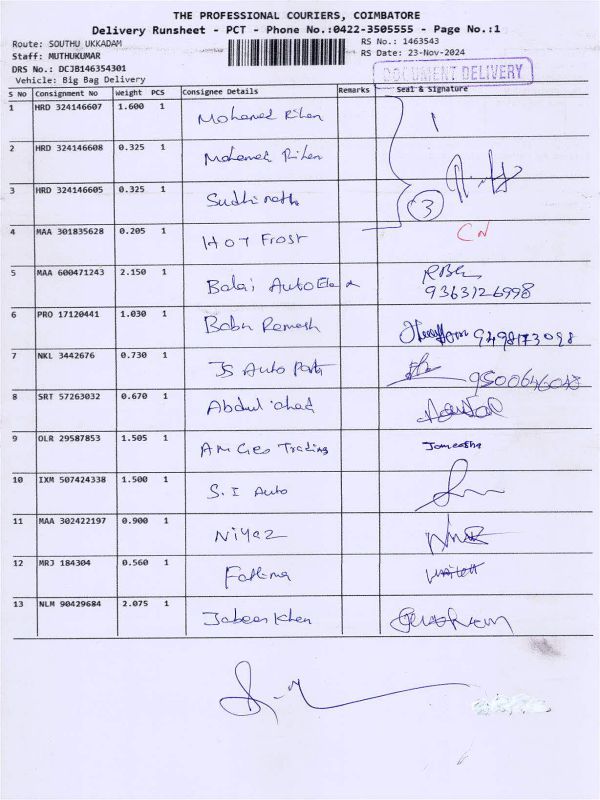 THE PROFESSIONAL COURIERS, COIMBATORE
Delivery Runsheet - PCT - Phone No.:0422-3505555 - Page No.:1
Route: SOUTHU UKKADAM RS No.: 1463543
Staff: MUTHUKUMAR RS Date: 23-Nov-2024
DRS No.: DCJB146354301
Vehicle: Big Bag Delivery
DOCUMENT DELIVERY
S No Consignment No Weight PCS Consignee Details Remarks Seal & Signature
1 HRD 324146607 1.600 1 Mohamed Rihan
2 HRD 324146608 0.325 1 Mohamed Rihan
3 HRD 324146605 0.325 1 Sudhinatha 3
4 MAA 301835628 0.205 1 HOT Frost CN
5 MAA 600471243 2.150 1 Balaji Auto Ele 9363126998
6 PRO 17120441 1.030 1 Babu Ramesh 9498173098
7 NKL 3442676 0.730 1 JS Auto Parts 9500646048
8 SRT 57263032 0.670 1 Abdul ahad
9 OLR 29587853 1.505 1 AM Geo Trading Jameesha
10 IXM 507424338 1.500 1 S.I Auto
11 MAA 302422197 0.900 1 Niyaz
12 MRJ 184304 0.560 1 Fathima
13 NLM 90429684 2.075 1 Jabeer Khan